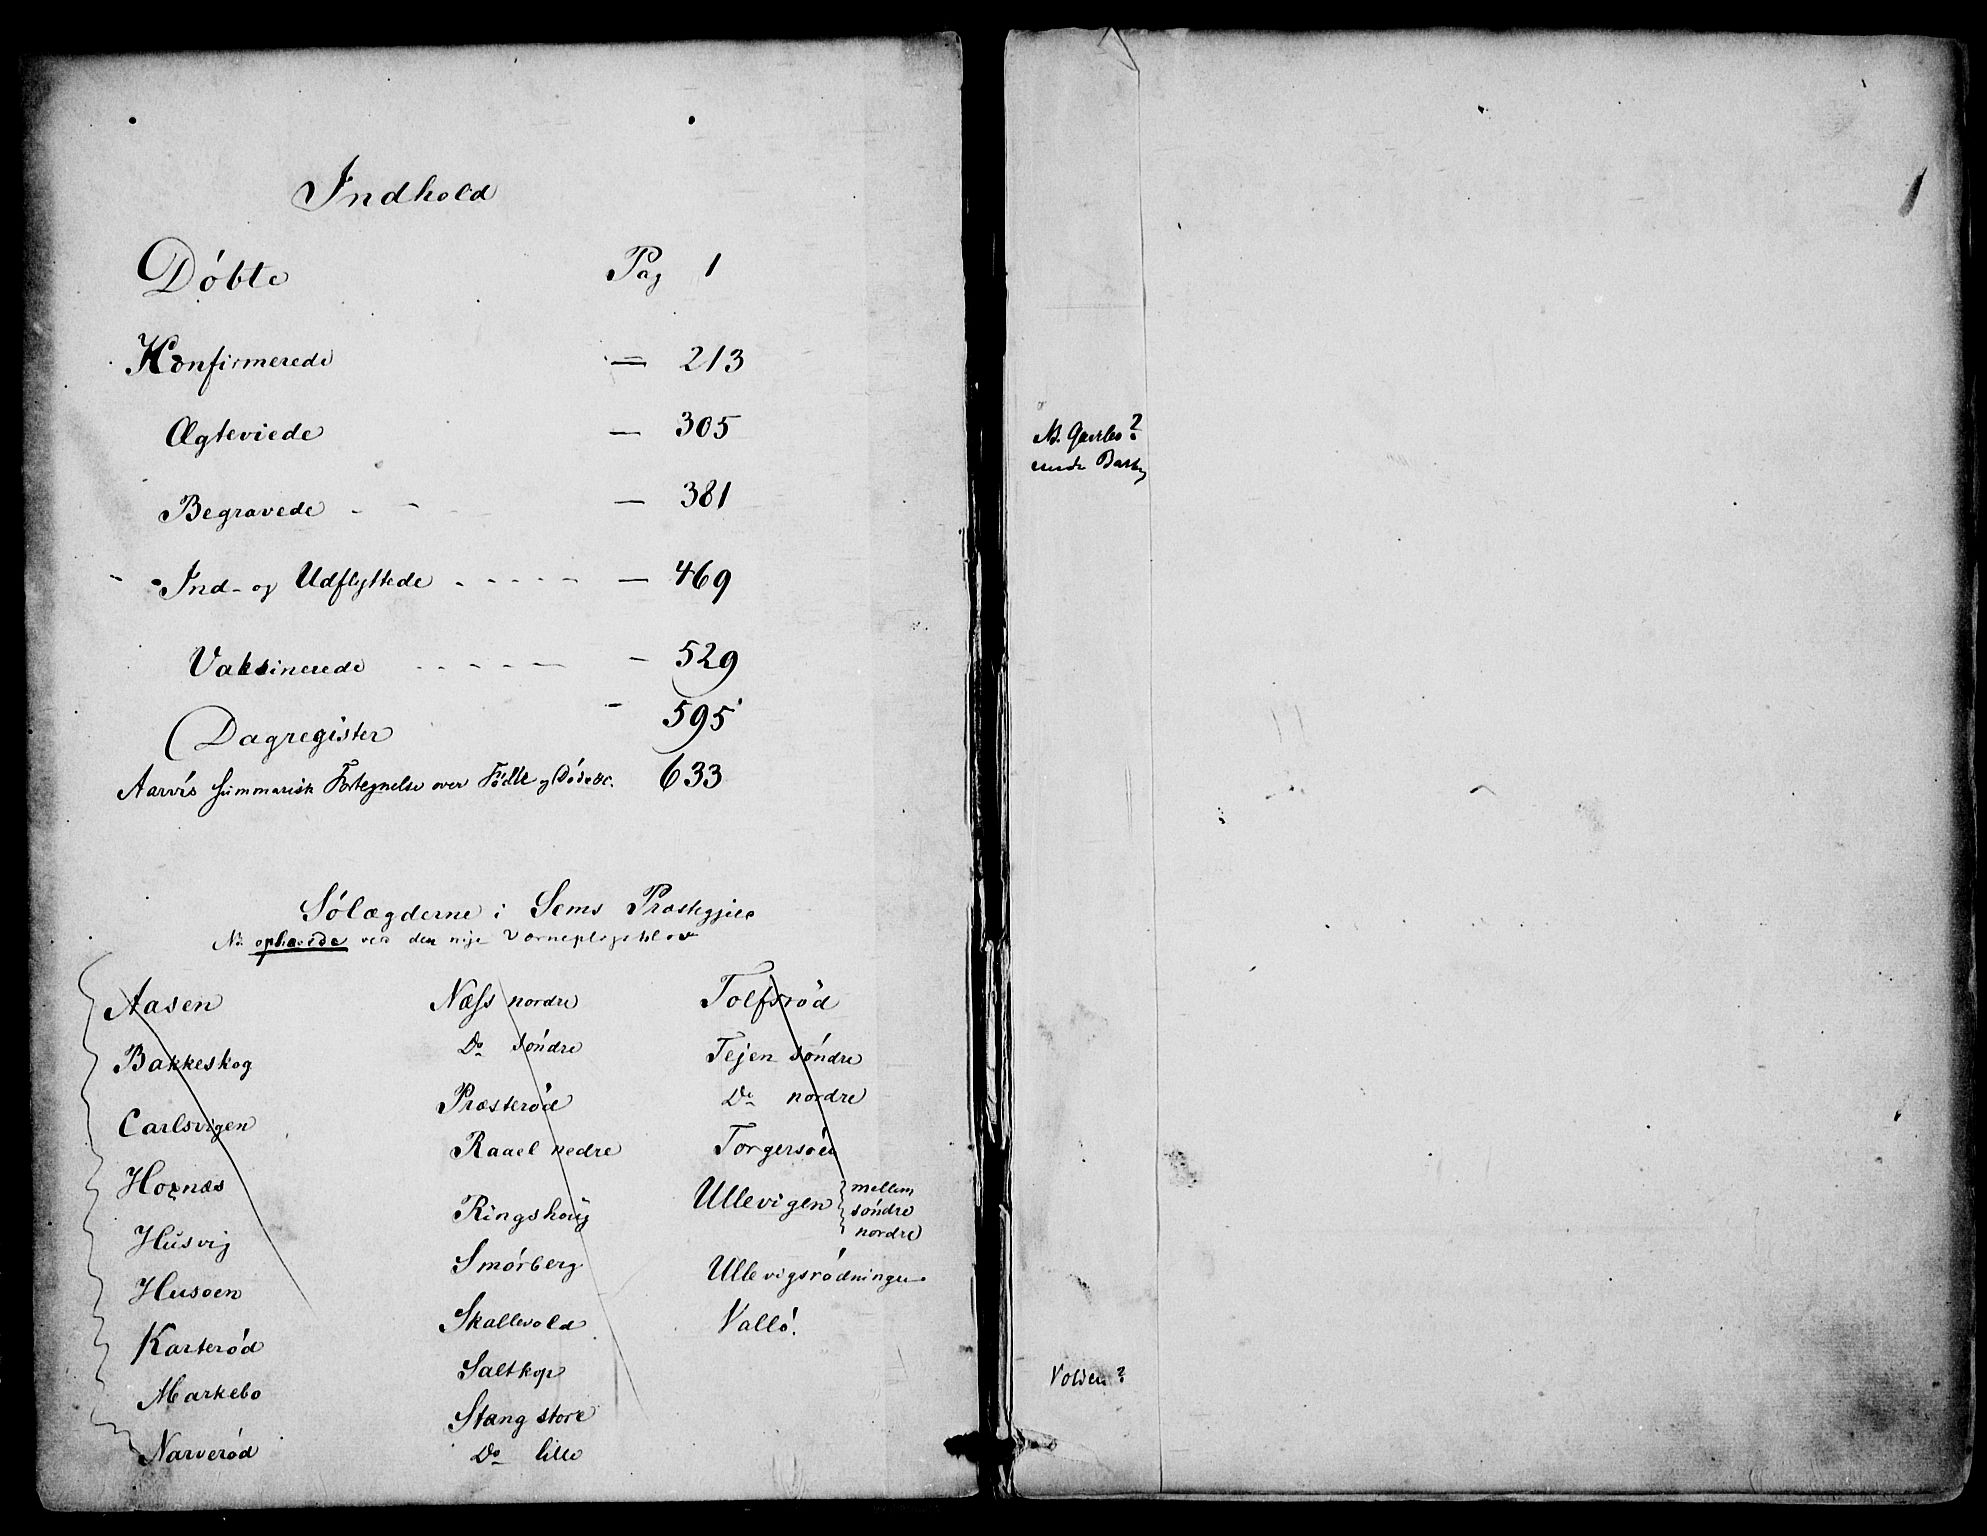 Indhold
Döbte Pag 1
Konfirmerede — 213
Ægteviede — 305
Begravede - - - — 381
Ind- og Udflyttede - - - - - — 469
Vaksinerede - - - - - - — 529
Dagregister - 595
Aarvis summarisk Fortegnelse over Födte og Döde &c. 633
Sölægderne i Sems Præstegjeld
NB. ophævede ved den nye Værnepligtslov
Aasen
Bakkeskog
Carlsvigen
Hornæs
Husvig
Husøen
Karterød
Markebo
Narveröd
Næss nordre
Do söndre
Præsteröd
Raael nedre
Ringshoug
Smörberg
Skallevold
Saltkop
Stang store
Do lille
Tolfsröd
Tejen söndre
Do nordre
Torgersöen
Ullevigen mellem
söndre
nordre
Ullevigsrödningen
Vallö.
1
NB. ?
Volden?